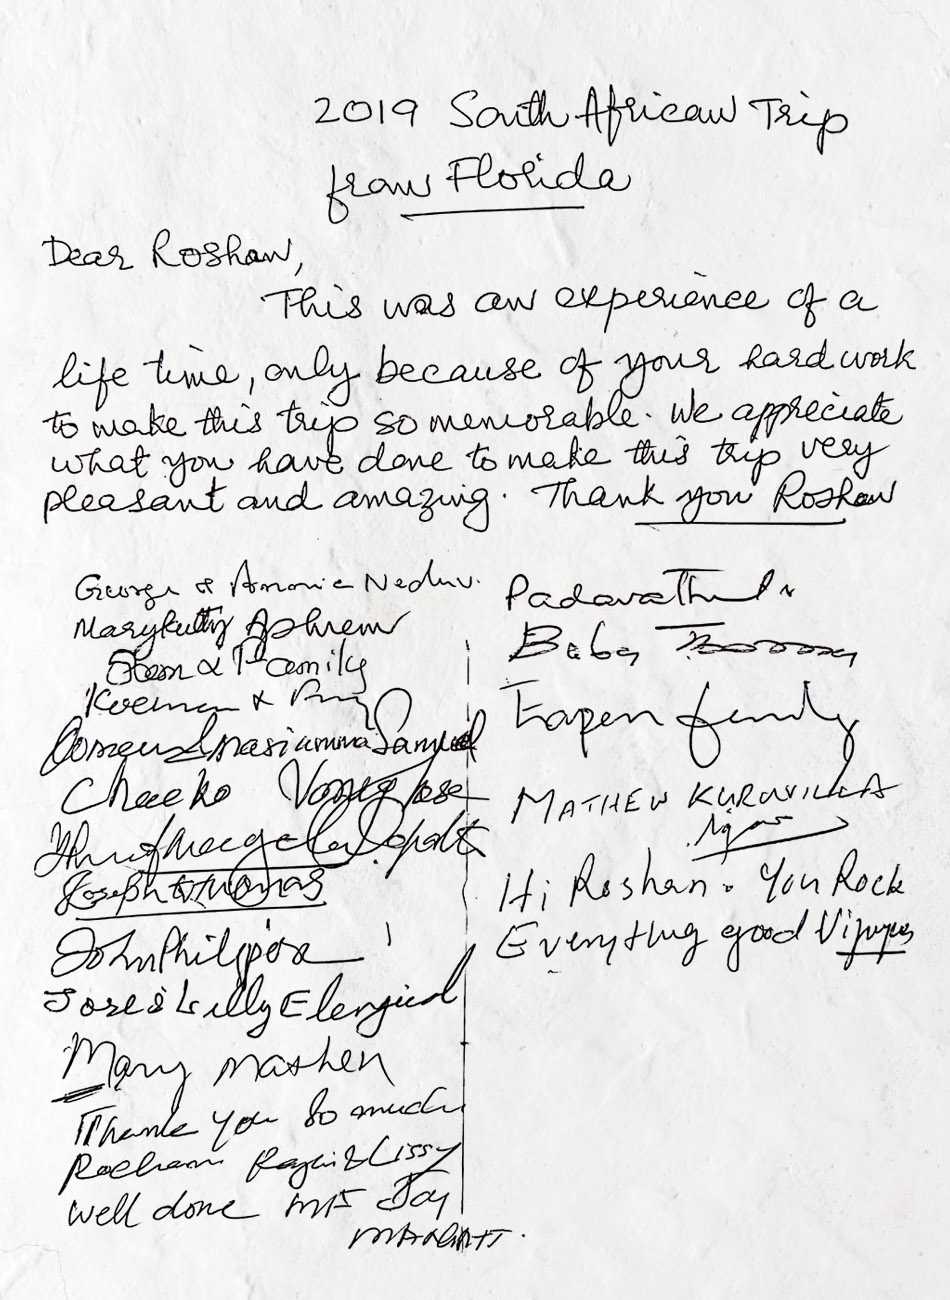 2019 South African Trip
from Florida
Dear Roshan,
This was an experience of a
life time, only because of your hard work
to make this trip so memorable. We appreciate
what you have done to make this trip very
pleasant and amazing. Thank you Roshan
George &
Marykutty Aphrem
& Family
&
Samuel
Chacko
Joseph Thomas
John Philipose
Jose & Lilly
Mary Mathen
Thank you so much
&Lissy
well done Joy
Baby
Eapen family
MATHEW KURUVILLA
Hi Roshan. You Rock
Everything good